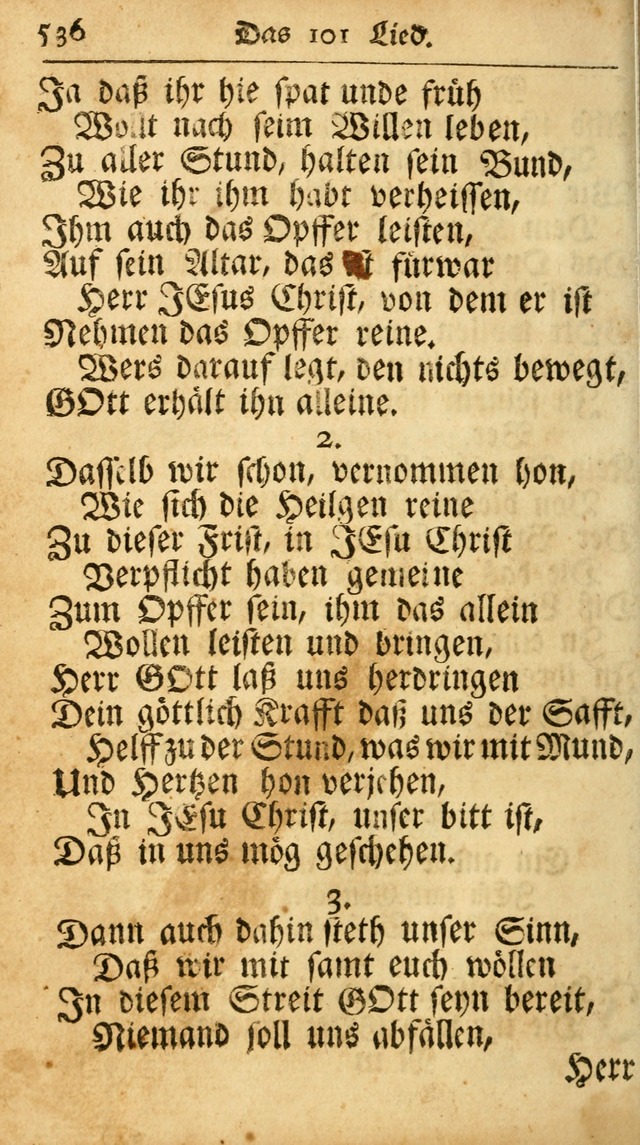 536 Das 101 Lied.
Ja daß ihr hie spat unde früh
Wollt nach seim Willen leben,
Zu aller Stund, halten sein Bund,
Wie ihr ihm habt verheissen,
Ihm auch das Opffer leisten,
Auf sein Altar, das fürwar
Herr JEsus Christ, von dem er ist
Nehmen das Opffer reine.
Wers darauf legt, den nichts bewegt,
GOtt erhält ihn alleine.
2.
Dasselb wir schon, vernommen hon,
Wie sich die Heilgen reine
Zu dieser Frist, in JEsu Christ
Verpflicht haben gemeine
Zum Opffer sein, ihm das allein
Wollen leisten und bringen,
Herr GOtt laß uns herdringen
Dein göttlich Krafft daß uns der Safft,
Helff zu der Stund, was wir mit Mund,
Und Hertzen hon verjehen,
In JEsu Christ, unser bitt ist,
Daß in uns mög geschehen.
3.
Dann auch dahin steth unser Sinn,
Daß wir mit samt euch wöllen
In diesem Streit GOtt seyn bereit,
Niemand soll uns abfällen,
Herr